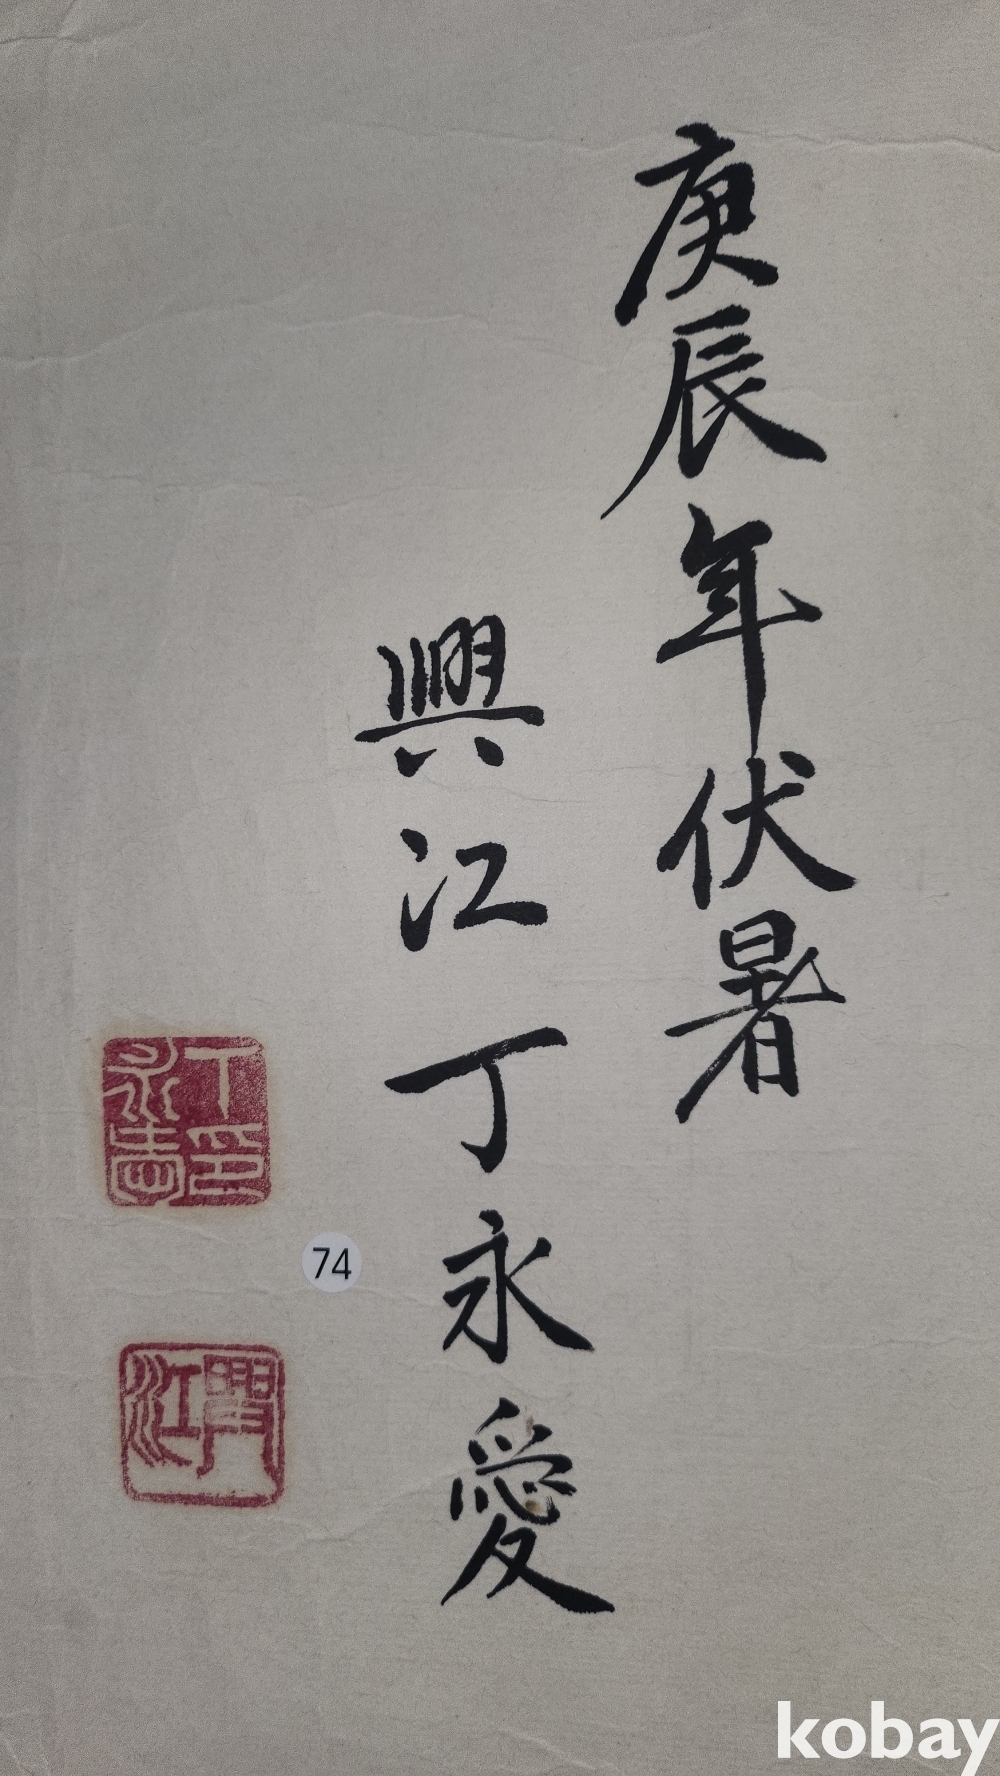 庚辰年伏暑
興江丁永愛
丁印
永愛
興江
74
kobay